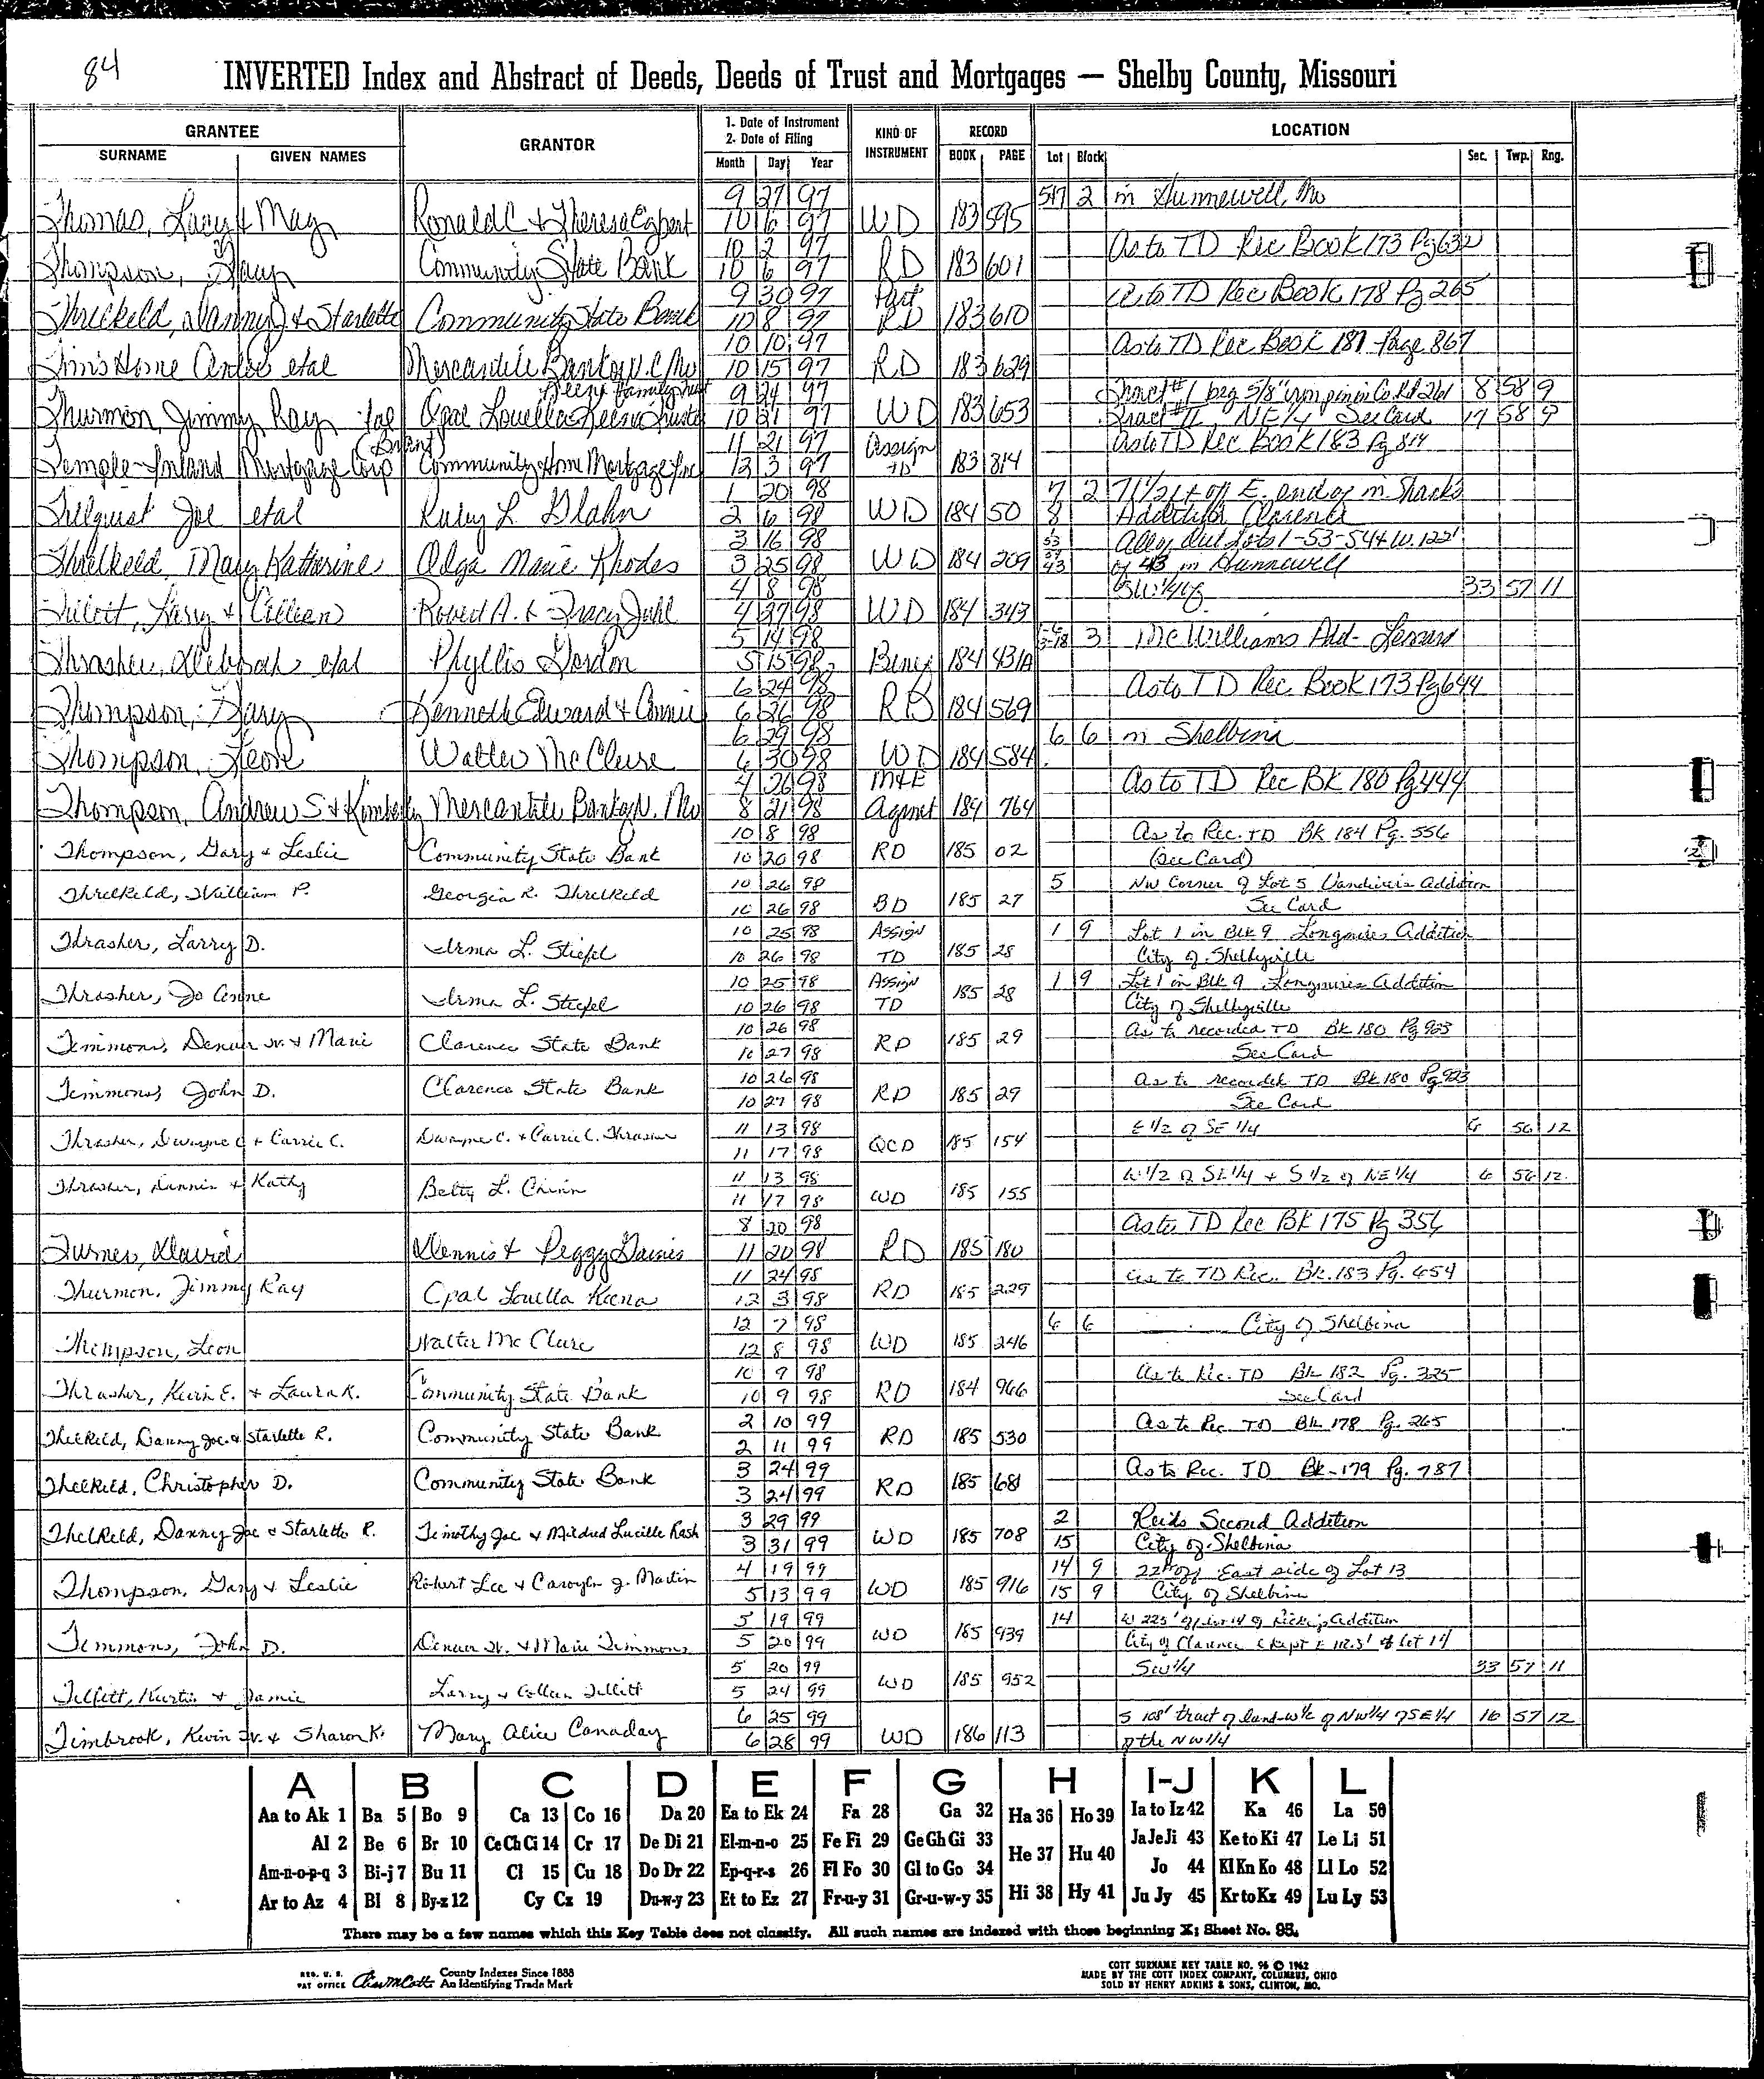 84
INVERTED Index and Abstract of Deeds, Deeds of Trust and Mortgages — Shelby County, Missouri
GRANTEE
SURNAME GIVEN NAMES
GRANTOR
1. Date of Instrument
2. Date of Filing
Month Day Year
KIND OF INSTRUMENT
RECORD
BOOK PAGE
LOCATION
Lot Block Sec. Twp. Rng.
9 27 97 2 in Hunnewell, Mo
Thomas, Lacy & May Ronald C & Theresa Egbert 10 6 97 WD 183 595
10 2 97 As to TD Rec Book 173 Pg 632
Thompson, Gary Community State Bank 10 6 97 RD 183 601
9 30 97 Part As to TD Rec Book 178 Pg 265
Threlkeld, Danny & Starlette Community State Bank 10 8 97 RD 183 610
10 10 97 As to TD Rec Book 181 Page 867
Tim's Home Center etal Mercantile Bank of N.C. Mo 10 15 97 RD 183 629
Family Trust 9 24 97 Tract #1 beg 5/8" iron pin in Co Rd 261 8 58 9
Thurmon, Jimmy Ray Opal Louella Trustee 10 21 97 WD 183 653 Tract #11 NE 1/4 See Card 17 58 9
11 21 97 Assign As to TD Rec Book 183 Pg 814
Temple-Inland Mortgage Corp Community Home Mortgage Inc 12 3 97 TD 183 814
1 20 98 7 2 71 1/2 ft off E. end of in Shacks
Tillquist Joe etal Ruby L. Glahn 2 6 98 WD 184 50 8 Addition Clarence
3 16 98 53 All of Out Lots 1-53-54 & W. 122'
Threlkeld, Mary Katherine Olga Marie Rhodes 3 25 98 WD 184 209 43 of 43 in Hunnewell
4 8 98 SW 1/4 of 33 57 11
Tillett, Larry & Colleen Robert A. & Tracy Juhl 4 27 98 WD 184 343
5 14 98 3 McWilliams Add- Leonard
Thrasher, Deborah etal Phyllis Gordon 5 15 98 Benef 184 431A
6 24 98 As to TD Rec Book 173 Pg 644
Thompson, Gary Kenneth Edward & Connie 6 26 98 RD 184 569
6 29 98 6 6 in Shelbina
Thompson, Leon Walter McClure 6 30 98 WD 184 584
4 26 98 M&E As to TD Rec Bk 180 Pg 444
Thompson, Andrew S & Kimberly Mercantile Bank of N. Mo 8 21 98 Agmet 184 764
10 8 98 As to Rec. TD Bk 184 Pg. 556
Thompson, Gary & Leslie Community State Bank 10 20 98 RD 185 02 (See Card)
10 26 98 5 NW Corner of Lot 5 Vandiver's Addition
Threlkeld, William P. Georgia R. Threlkeld 10 26 98 BD 185 27 See Card
10 25 98 Assign 1 9 Lot 1 in Blk 9 Longmires Addition
Thrasher, Larry D. Irma L. Stiefel 10 26 98 TD 185 28 City of Shelbyville
10 25 98 Assign 1 9 Lot 1 in Blk 9 Longmires Addition
Thrasher, Jo Anne Irma L. Stiefel 10 26 98 TD 185 28 City of Shelbyville
10 26 98 As to recorded TD Bk 180 Pg 923
Timmons, Denver Jr. & Marie Clarence State Bank 10 27 98 RD 185 29 See Card
10 26 98 As to recorded TD Bk 180 Pg 923
Timmons, John D. Clarence State Bank 10 27 98 RD 185 29 See Card
11 13 98 E 1/2 of SE 1/4 6 56 12
Thrasher, Dwayne C & Carrie C. Dwayne C. & Carrie C. Thrasher 11 17 98 QCD 185 154
11 13 98 W 1/2 of SE 1/4 & S 1/2 of NE 1/4 6 56 12
Thrasher, Dennis & Kathy Betty L. Crain 11 17 98 WD 185 155
8 20 98 As to TD Rec Bk 175 Pg 356
Turner, David Dennis & Peggy Gaines 11 20 98 RD 185 180
11 24 98 as to TD Rec. Bk. 183 Pg. 654
Thurmon, Jimmy Ray Opal Louella Keena 12 3 98 RD 185 229
12 7 98 6 6 City of Shelbina
Thompson, Leon Walter McClure 12 8 98 WD 185 246
10 9 98 As to Rec. TD Bk 182 Pg. 325
Thrasher, Kevin E. & Laura K. Community State Bank 10 9 98 RD 184 966 See Card
2 10 99 As to Rec TD Bk 178 Pg. 265
Thelkeld, Danny Joe & Starlette R. Community State Bank 2 11 99 RD 185 530
3 24 99 As to Rec. TD Bk-179 Pg. 787
Thelkeld, Christopher D. Community State Bank 3 24 99 RD 185 681
3 29 99 2 Reids Second Addition
Thelkeld, Danny Joe & Starlette R. Timothy Joe & Mildred Lucille Rash 3 31 99 WD 185 708 15 City of Shelbina
4 19 99 14 9 22' off East side of Lot 13
Thompson, Gary & Leslie Robert Lee & Carolyn J. Martin 5 13 99 WD 185 916 15 9 City of Shelbina
5 19 99 14 W 225' of Lot 14 of Addition
Timmons, John D. Denver Jr. & Marie Timmons 5 20 99 WD 185 939 City of Clarence Except E 112.5' of Lot 14
5 20 99 SW 1/4 33 57 11
Tillett, Kurtis & Jamie Larry & Colleen Tillett 5 24 99 WD 185 952
6 25 99 S 108' tract of land W 1/2 of NW 1/4 of SE 1/4 16 57 12
Timbrook, Kevin Jr. & Sharon K. Mary Alice Canaday 6 28 99 WD 186 113 of the NW 1/4
A B C D E F G H I-J K L
Aa to Ak 1 Ba 5 Bo 9 Ca 13 Co 16 Da 20 Ea to Ek 24 Fa 28 Ga 32 Ha 36 Ho 39 Ia to Iz 42 Ka 46 La 50
Al 2 Be 6 Br 10 Ce Ch Ci 14 Cr 17 De Di 21 El-m-n-o 25 Fe Fi 29 Ge Gh Gi 33 He 37 Hu 40 Ja Je Ji 43 Ke to Ki 47 Le Li 51
Am-n-o-p-q 3 Bi-j 7 Bu 11 Cl 15 Cu 18 Do Dr 22 Ep-q-r-s 26 Fl Fo 30 Gl to Go 34 Jo 44 Kl Kn Ko 48 Ll Lo 52
Ar to Az 4 Bl 8 By-z 12 Cy Cz 19 Du-w-y 23 Et to Ez 27 Fr-u-y 31 Gr-u-w-y 35 Hi 38 Hy 41 Ju Jy 45 Kr to Kz 49 Lu Ly 53
There may be a few names which this Key Table does not classify. All such names are indexed with those beginning X; Sheet No. 95.
REG. U. S. PAT OFFICE County Indexes Since 1888
An Identifying Trade Mark
COTT SURNAME KEY TABLE NO. 96 © 1962
MADE BY THE COTT INDEX COMPANY, COLUMBUS, OHIO
SOLD BY HENRY ADKINS & SONS, CLINTON, MO.